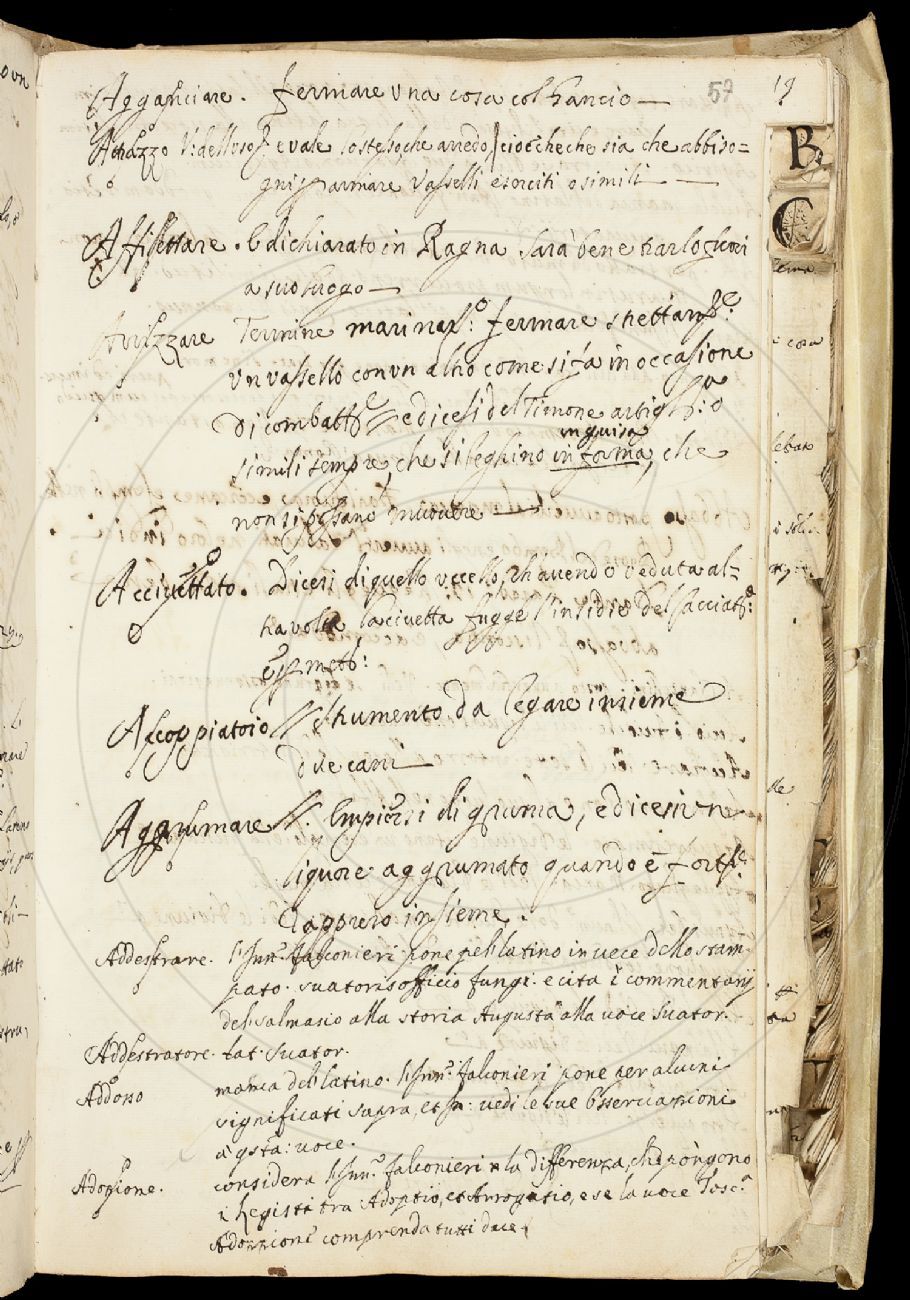 Agganciare. fermare una cosa col Gancio — 57 19
B
Attrazzo V: dell'uso. e vale lo stesso, che arredo, cioè che che sia che abbiso=
gni p armare Vasselli eserciti o simili —
C
Affisettare. È dichiarato in Ragna sarà bene trarlo fuori
a suo luogo —
Termine marinaʳᵒ: fermare strettamᵗᵉ:
un vassello con un altro come si fa in occasione
di combattᵗᵉ e dicesi del Timone artiglʳⁱᵃ: o
in guisa
simili sempre, che si leghino in forma, che
non si possano muovere —
Accivettato. Dicesi di quello uccello, ch avendo veduta al=
tra volta la civetta fugge l'insidie del
Accoppiatoio strumento da legare insieme
due cani —
Aggrumare. Empiersi di gruma, e dicesi un
liquore aggrumato quando è
rappreso insieme.
Addestrare. l'Innᵗᵒ falconieri pone pel latino in vece dello stam-
pato. suatoris officio fungi. e cita i commentarij
del Salmasio alla storia Augusta alla voce Suator.
Addestratore. lat. Suator.
Addosso manca del latino. l'Innᵗᵒ falconieri pone per alcuni
significati supra, et in: vedi le sue Osservazioni
a qsta: voce.
Adozione. considera l'Innᵗᵒ falconieri la differenza, che pongono
i Legisti tra Adoptio, et Arrogatio, e se la voce Toscᵃ
Adozzione comprenda tutti due.